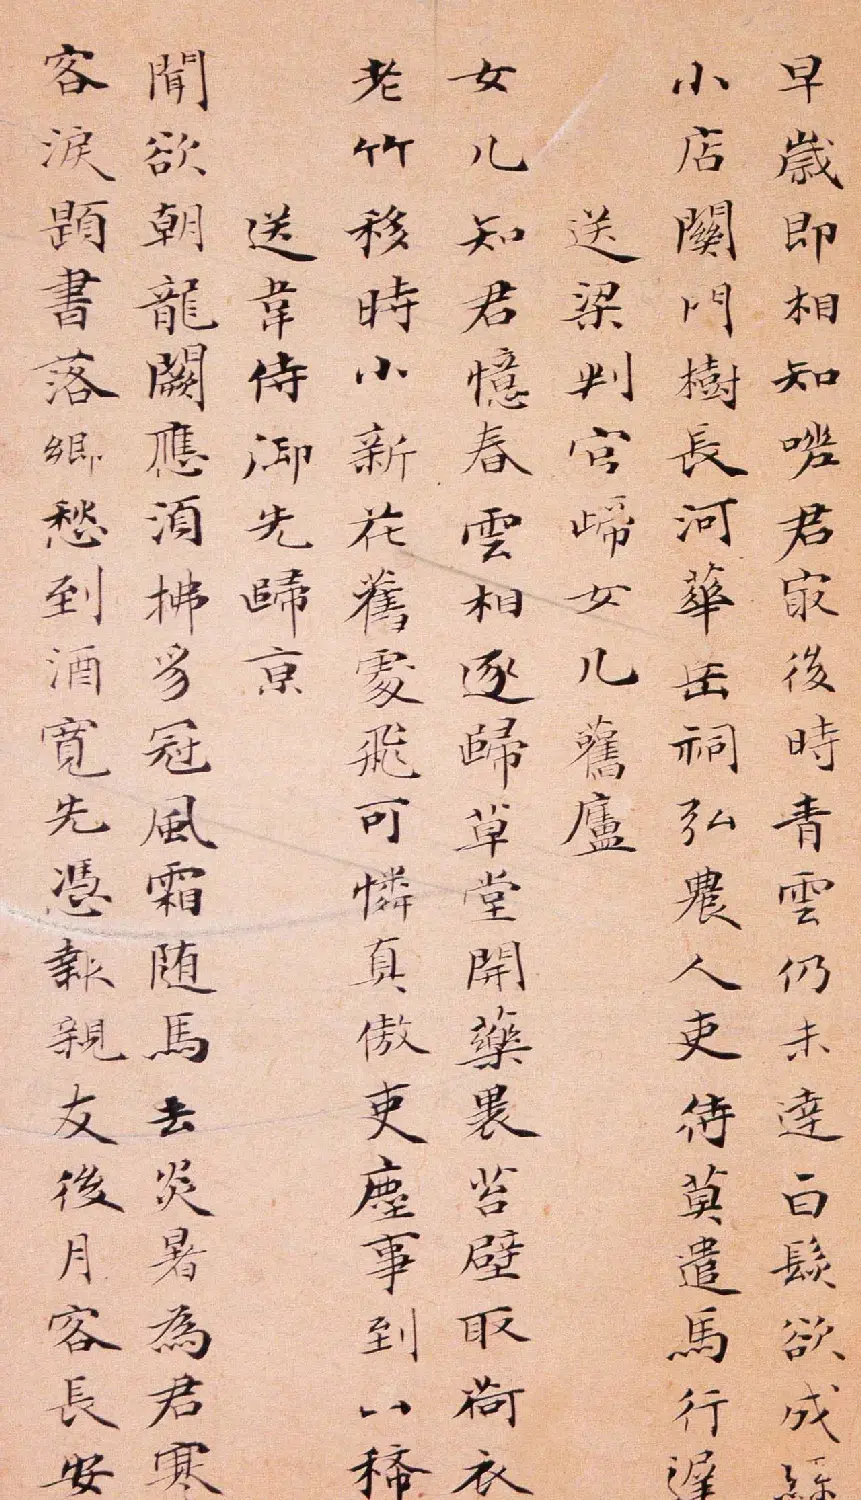 早歲即相知嗟君㝡後時青雲仍未達白髮欲成絲
小店關門樹長河華岳祠弘農人吏待莫遣馬行遲
送梁判官歸女几舊廬
女几知君憶春雲相逐歸草堂開藥裹苔壁取荷衣
老竹移時小新花舊處飛可憐真傲吏塵事到山稀
送韋侍御先歸京
聞欲朝龍闕應須拂豸冠風霜随馬去炎暑為君寒
客淚題書落鄉愁到酒寬先憑報親友後月客長安